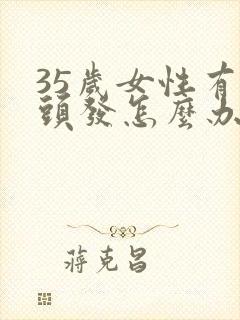 35歲女性有
頭發怎麼办
蔣克昌